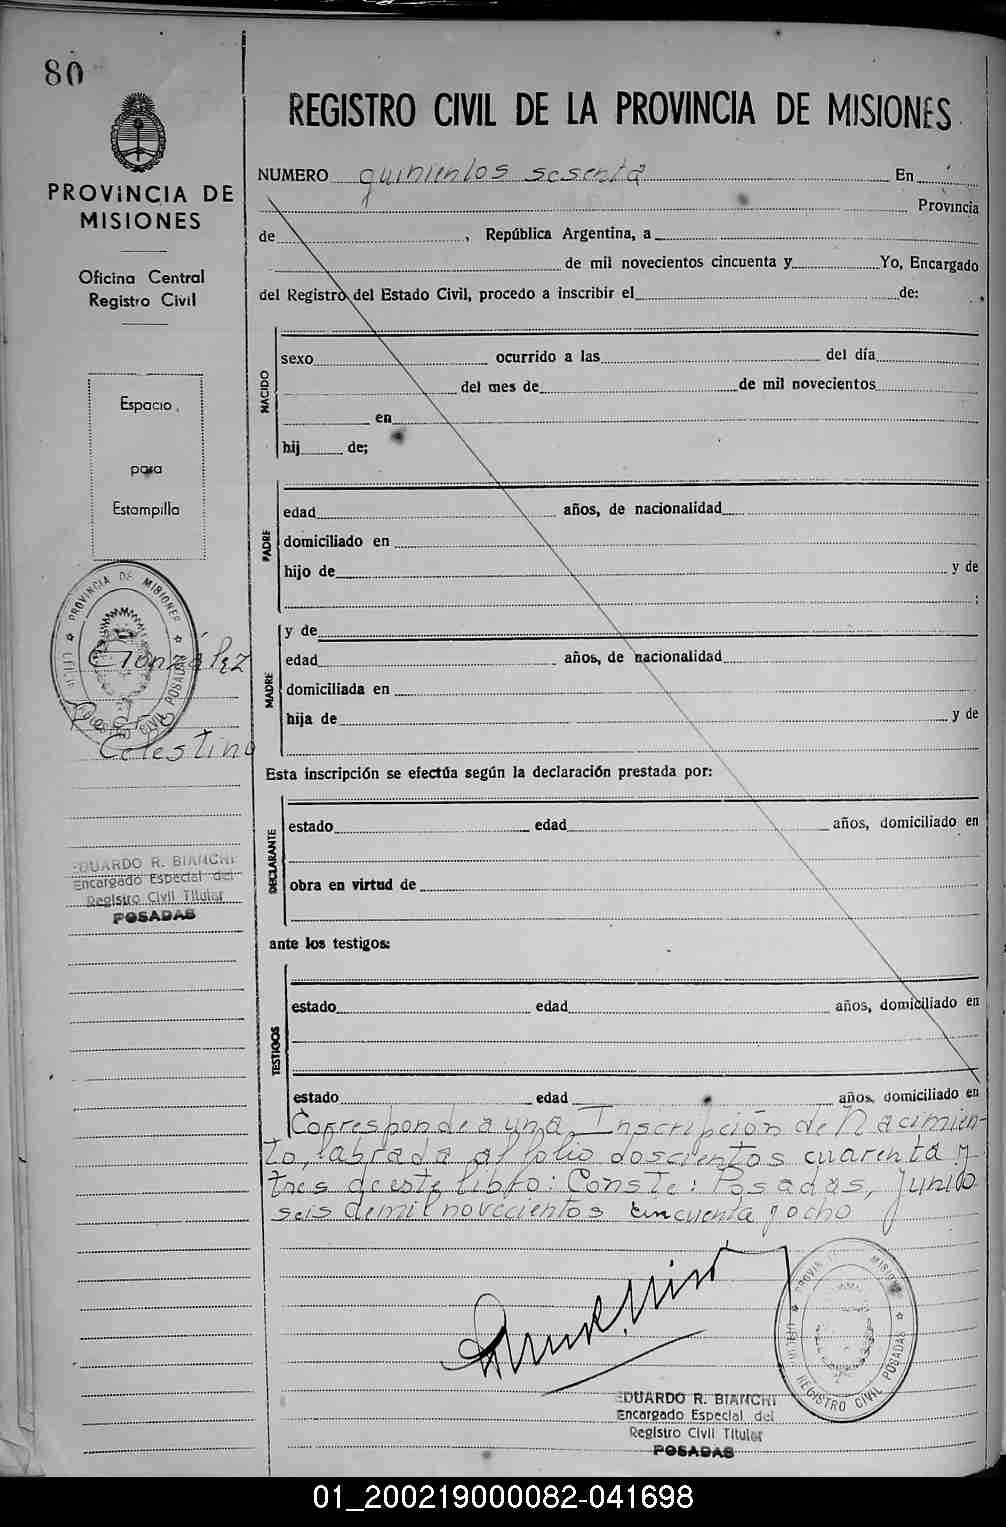 80
PROVINCIA DE
MISIONES
Oficina Central
Registro Civil
Espacio
para
Estampilla
PROVINCIA DE MISIONES
REGISTRO CIVIL POSADAS
González
Celestino
EDUARDO R. BIANCHI
Encargado Especial del
Registro Civil Titular
POSADAS
REGISTRO CIVIL DE LA PROVINCIA DE MISIONES
NUMERO quinientos sesenta En
Provincia
de , República Argentina, a
de mil novecientos cincuenta y Yo, Encargado
del Registro del Estado Civil, procedo a inscribir el de:
NACIDO
sexo ocurrido a las del día
del mes de de mil novecientos
en
hij de;
PADRE
edad años, de nacionalidad
domiciliado en
hijo de y de
;
MADRE
y de
edad años, de nacionalidad
domiciliada en
hija de y de
Esta inscripción se efectúa según la declaración prestada por:
DECLARANTE
estado edad años, domiciliado en
obra en virtud de
ante los testigos:
TESTIGOS
estado edad años, domiciliado en
estado edad años, domiciliado en
Corresponde a una Inscripción de Nacimien-
to, labrada al folio doscientos cuarenta y
tres de este libro: Conste: Posadas, Junio
seis de mil novecientos cincuenta y ocho
PROVINCIA DE MISIONES
REGISTRO CIVIL POSADAS
EDUARDO R. BIANCHI
Encargado Especial del
Registro Civil Titular
POSADAS
01_200219000082-041698